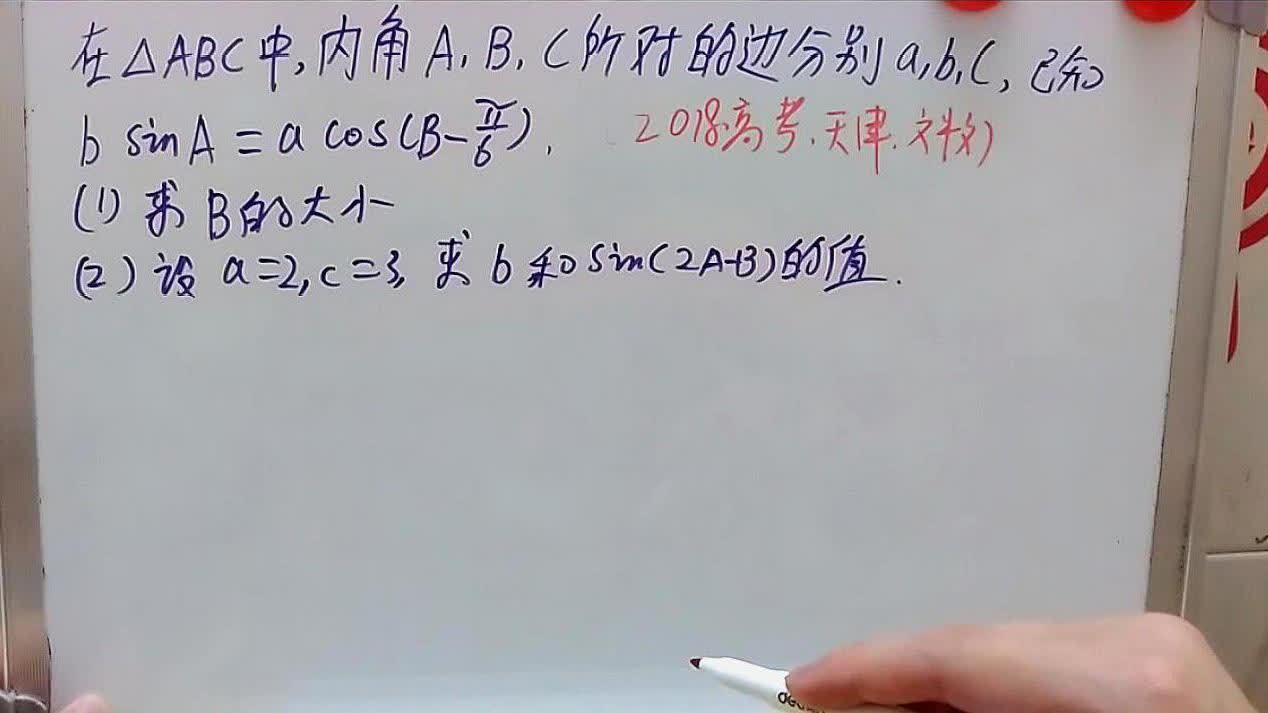 在△ABC中,内角A,B,C所对的边分别a,b,c,已知
b sinA=a cos(B-π/6).
2018.高考.天津.文数)
(1) 求B的大小
(2) 设 a=2,c=3,求 b和sin(2A-B)的值.